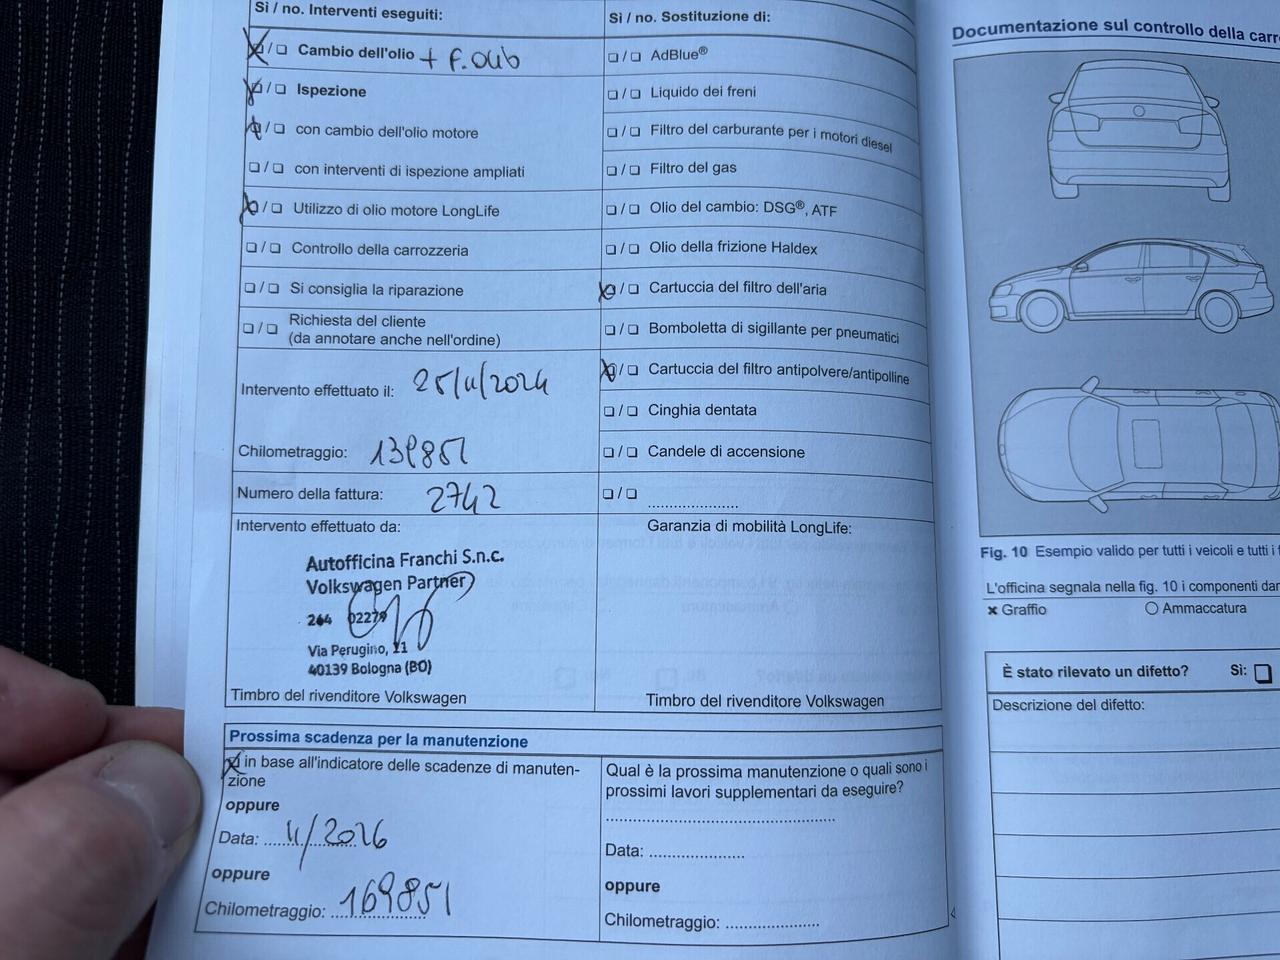 Sì / no. Interventi eseguiti:
Cambio dell'olio + F. Olio
Ispezione
con cambio dell'olio motore
con interventi di ispezione ampliati
Utilizzo di olio motore LongLife
Controllo della carrozzeria
Si consiglia la riparazione
Richiesta del cliente
(da annotare anche nell'ordine)
Intervento effettuato il: 25/11/2024
Chilometraggio: 139851
Numero della fattura: 2742
Intervento effettuato da:
Autofficina Franchi S.n.c.
Volkswagen Partner
264 02279
Via Perugino, 11
40139 Bologna (BO)
Timbro del rivenditore Volkswagen
Sì / no. Sostituzione di:
AdBlue®
Liquido dei freni
Filtro del carburante per i motori diesel
Filtro del gas
Olio del cambio: DSG®, ATF
Olio della frizione Haldex
Cartuccia del filtro dell'aria
Bomboletta di sigillante per pneumatici
Cartuccia del filtro antipolvere/antipolline
Cinghia dentata
Candele di accensione
Garanzia di mobilità LongLife:
Timbro del rivenditore Volkswagen
Prossima scadenza per la manutenzione
in base all'indicatore delle scadenze di manuten-
zione
oppure
Data: 11/2026
oppure
Chilometraggio: 169851
Qual è la prossima manutenzione o quali sono i
prossimi lavori supplementari da eseguire?
Data:
oppure
Chilometraggio:
Documentazione sul controllo della
Fig. 10 Esempio valido per tutti i veicoli e tutti i
L'officina segnala nella fig. 10 i componenti
× Graffio
Ammaccatura
È stato rilevato un difetto? Sì:
Descrizione del difetto: